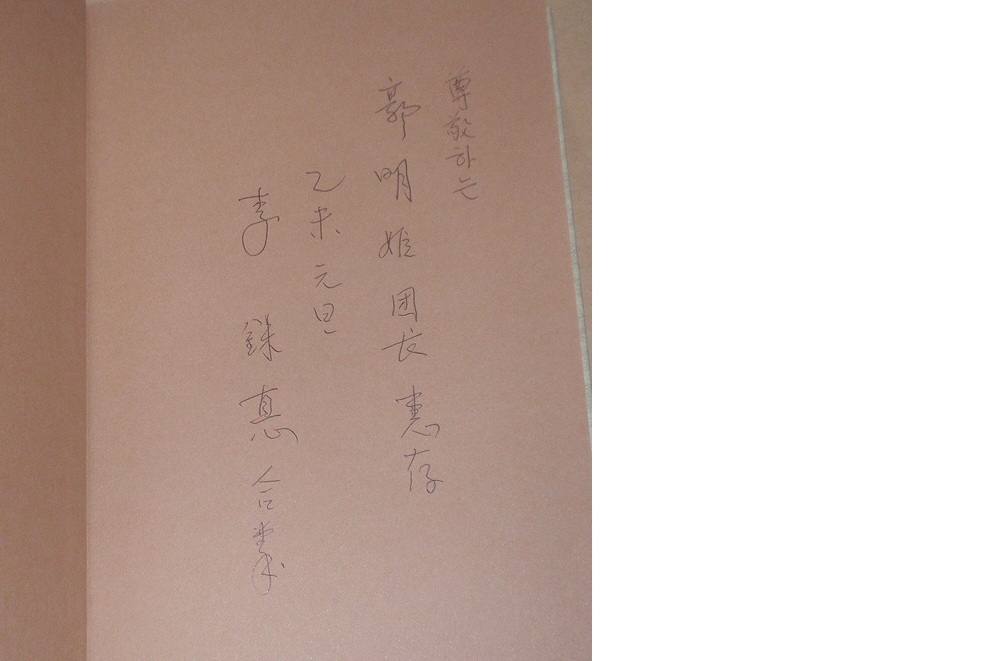 尊敬하는
郭明姬团长惠存
乙未元旦
李銖惪合掌